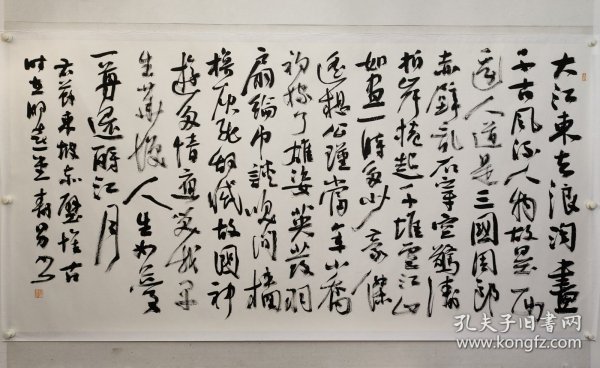 大江東去浪淘盡
千古風流人物故壘西
邊人道是三國周郎
赤壁亂石穿空驚濤
拍岸捲起千堆雪江山
如畫一時多少豪傑
遙想公瑾當年小喬
初嫁了雄姿英發羽
扇綸巾談笑間檣
櫓灰飛煙滅故國神
遊多情應笑我早
生華髮人生如夢
一尊還酹江月
蘇東坡赤壁懷古
孔夫子旧书网
www.kongfz.com